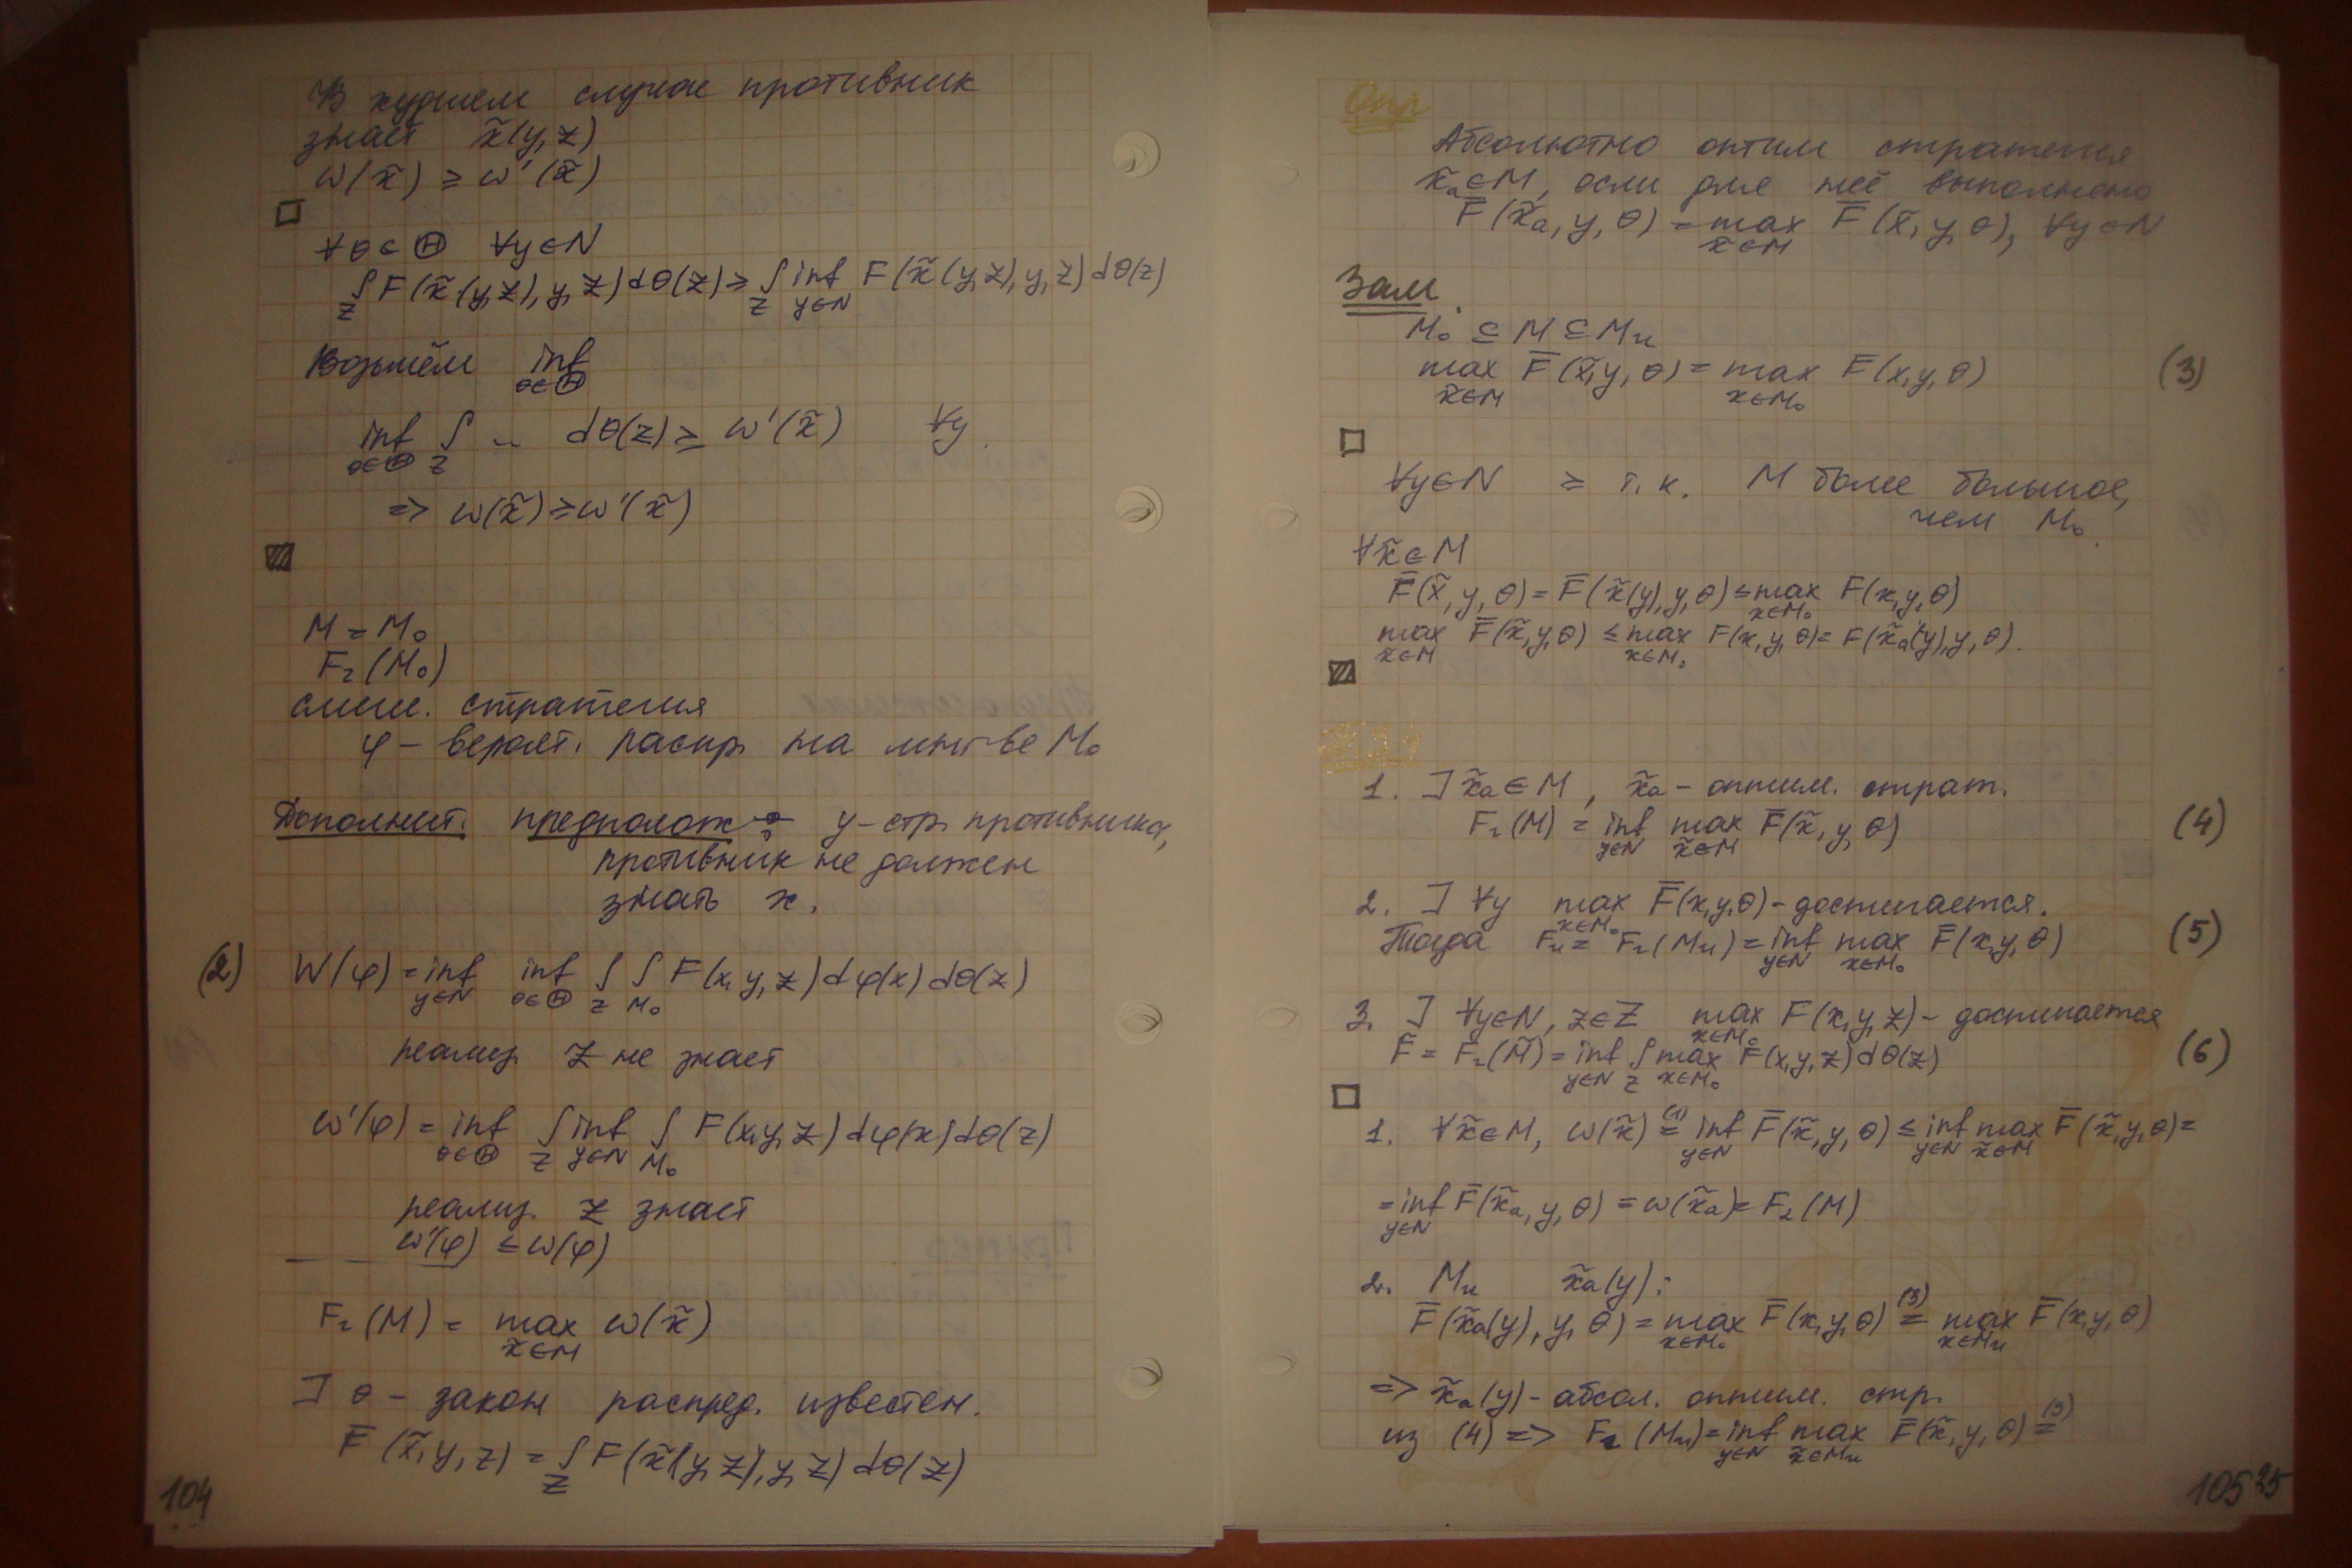 В худшем случае противник
знает x̃(y,z)
ω(x̃) ≥ ω'(x̃)
□
∀θ∈Θ ∀y∈N
∫_Z F(x̃(y,z),y,z)dθ(z) ≥ ∫_Z inf_{y∈N} F(x̃(y,z),y,z)dθ(z)
Возьмём inf_{θ∈Θ}
inf_{θ∈Θ} ∫_Z … dθ(z) ≥ ω'(x̃) ∀y.
=> ω(x̃) ≥ ω'(x̃)
▨
M = M₀
F₂(M₀)
смеш. стратегия
φ – вероят. распр. на мн-ве M₀
Дополнит. предполож-е: y-стр. противника,
противник не должен
знать x.
(2) W(φ) = inf_{y∈N} inf_{θ∈Θ} ∫_Z ∫_{M₀} F(x,y,z)dφ(x)dθ(z)
реализ. z не знает
ω'(φ) = inf_{θ∈Θ} ∫_Z inf_{y∈N} ∫_{M₀} F(x,y,z)dφ(x)dθ(z)
реализ. z знает
ω'(φ) ≤ ω(φ)
F₂(M) = max_{x̃∈M} ω(x̃)
] θ – закон распред. известен.
F̄(x̃,y,z) = ∫_Z F(x̃(y,z),y,z)dθ(z)
104
Опр
Абсолютно оптим стратегия
x̃ₐ∈M, если для неё выполнено
F̄(x̃ₐ,y,θ) = max_{x̃∈M} F̄(x̃,y,θ), ∀y∈N
Зам.
M₀ ⊆ M ⊆ Mᵤ
max_{x̃∈M} F̄(x̃,y,θ) = max_{x∈M₀} F(x,y,θ) (3)
□
∀y∈N ≥ т.к. M более большое,
чем M₀.
∀x̃∈M
F̄(x̃,y,θ) = F̄(x̃(y),y,θ) ≤ max_{x∈M₀} F(x,y,θ)
max_{x̃∈M} F̄(x̃,y,θ) ≤ max_{x∈M₀} F(x,y,θ) = F(x̃ₐ(y),y,θ).
▨
1. ] x̃ₐ∈M, x̃ₐ – оптим. страт.
F₂(M) = inf_{y∈N} max_{x̃∈M} F̄(x̃,y,θ) (4)
2. ] ∀y max_{x∈M₀} F̄(x,y,θ) – достигается.
Тогда Fᵤ = F₂(Mᵤ) = inf_{y∈N} max_{x∈M₀} F̄(x,y,θ) (5)
3. ] ∀y∈N, z∈Z max_{x∈M₀} F(x,y,z) – достигается
F̄ = F₂(M̃) = inf_{y∈N} ∫_Z max_{x∈M₀} F(x,y,z)dθ(z) (6)
□
1. ∀x̃∈M, ω(x̃) =⁽¹⁾ inf_{y∈N} F̄(x̃,y,θ) ≤ inf_{y∈N} max_{x̃∈M} F̄(x̃,y,θ) =
= inf_{y∈N} F̄(x̃ₐ,y,θ) = ω(x̃ₐ) = F₂(M)
2. Mᵤ x̃ₐ(y):
F̄(x̃ₐ(y),y,θ) = max_{x∈M₀} F̄(x,y,θ) =⁽³⁾ max_{x∈Mᵤ} F̄(x,y,θ)
=> x̃ₐ(y) – абсол. оптим. стр.
из (4) => F₂(Mᵤ) = inf_{y∈N} max_{x̃∈Mᵤ} F̄(x̃,y,θ) =⁽³⁾
105 25